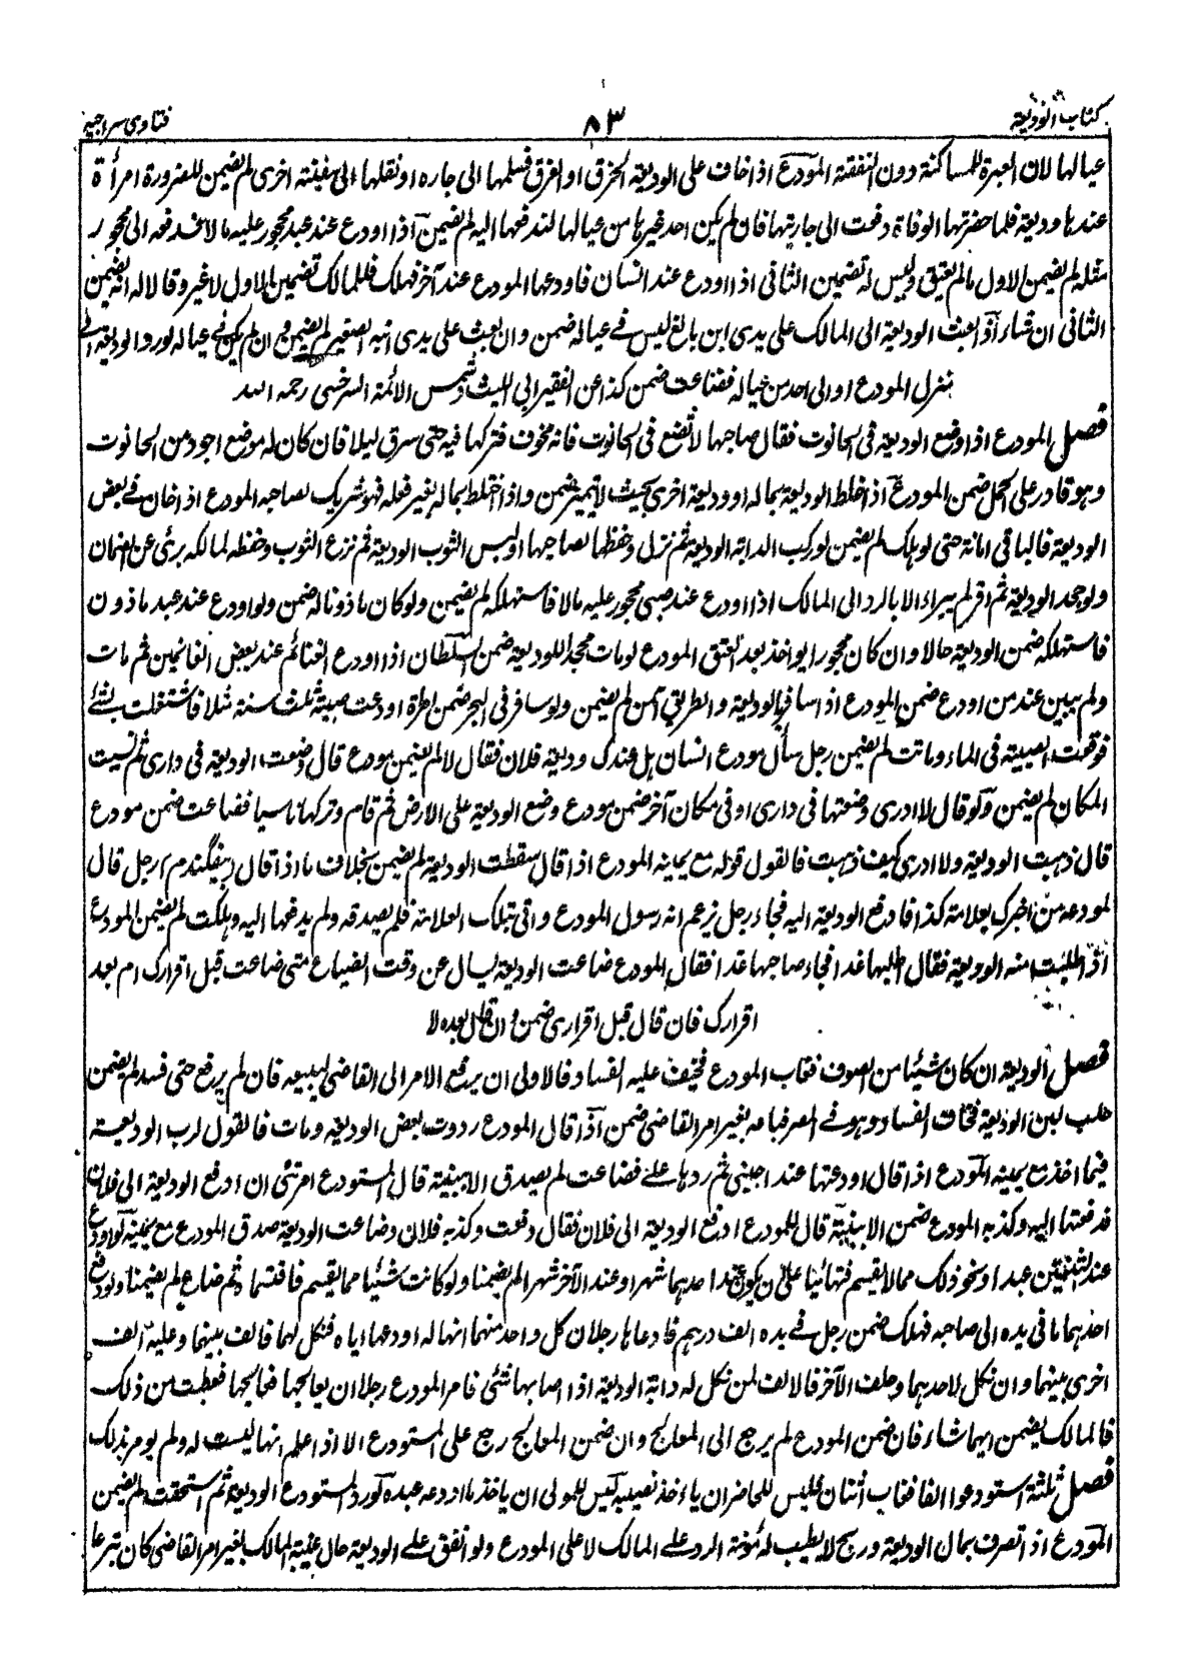 كتاب الوديعة
٨٣
فتاوى سراجيه
عيالها لان العبرة للمساكنة دون النفقة المودع اذا خاف على الوديعة الحرق او الغرق فسلمها الى جاره او نقلها الى سفينة اخرى لم يضمن للضرورة امرأة
عندها وديعة فلما حضرتها الوفاة دفعت الى جارتها فان لم يكن احد غيرها من عيالها لتدفعها اليه لم يضمن اذا اودع عند عبد محجور عليه مالا فدفعه الى محجور
مثله لم يضمن الاول مالم يعتق وليس له تضمين الثانى اذا اودع عند انسان فاودعها المودع عند آخر فهلك فللمالك تضمين الاول لا غير وقالا له ان يضمن
الثانى ان شاء اذا بعث الوديعة الى المالك على يدى ابن بالغ ليس فى عياله ضمن وان بعث على يدى ابنه الصغير لم يضمن وان لم يكن فى عياله لو رد الوديعة الى
منزل المودع او الى احد من عياله فضاعت ضمن كذا عن الفقيه ابى الليث وشمس الائمة السرخسى رحمه الله
فصل المودع اذا وضع الوديعة فى الحانوت فقال صاحبها لا تضع فى الحانوت فانه مخوف فتركها فيه حتى سرق ليلا فان كان له موضع اجود من الحانوت
وهو قادر على الحمل ضمن المودع اذا خلط الوديعة بماله او وديعة اخرى بحيث لا تميز ضمن واذا اختلط بماله بغير فعله فهو شريك لصاحبه المودع اذا خان فى بعض
الوديعة فالباقى امانة حتى لو هلك لم يضمن لو ركب الدابة الوديعة ثم نزل وحفظها لصاحبها او لبس الثوب الوديعة ثم نزع الثوب وحفظه لمالكه برئ عن الضمان
ولو جحد الوديعة ثم اقر لم يبرء الا بالرد الى المالك اذا اودع عند صبى محجور عليه مالا فاستهلكه لم يضمن ولو كان ماذونا له ضمن ولو اودع عند عبد ماذون
فاستهلكه ضمن الوديعة حالا وان كان محجورا يواخذ بعد العتق المودع لو مات مجهلا للوديعة ضمن السلطان اذا اودع الغنائم عند بعض الغانمين ثم مات
ولم يبين عند من اودع ضمن المودع اذا سافر بالوديعة والطريق آمن لم يضمن ولو سافر فى البحر ضمن امرأة اودعت صبية ثلث سنة مثلا فاشتغلت بشئ
فوقعت الصبية فى الماء وماتت لم يضمن رجل سأل مودع انسان هل عندك وديعة فلان فقال لا لم يضمن مودع قال وضعت الوديعة فى دارى ثم نسيت
المكان لم يضمن ولو قال لا ادرى وضعتها فى دارى او فى مكان آخر ضمن مودع وضع الوديعة على الارض ثم قام وتركها ناسيا فضاعت ضمن مودع
قال ذهبت الوديعة ولا ادرى كيف ذهبت فالقول قوله مع يمينه المودع اذا قال سقطت الوديعة لم يضمن بخلاف ما اذا قال (بيفگندم) رجل قال
لمودعه من اخبرك بعلامة كذا فادفع الوديعة اليه فجاء رجل زعم انه رسول المودع واتى بتلك العلامة فلم يصدقه ولم يدفعها اليه وهلكت لم يضمن المودع
اذا طلبت منه الوديعة فقال اطلبها غدا فجاء صاحبها غدا فقال المودع ضاعت الوديعة يسال عن وقت الضياع متى ضاعت قبل اقرارك ام بعد
اقرارك فان قال قبل اقرارى ضمن وان قال بعده لا
فصل الوديعة ان كان شيئا من الصوف فغاب المودع فخيف عليه الفساد فالاولى ان يرفع الامر الى القاضى ليبيعه فان لم يرفع حتى فسد لم يضمن
حلب لبن الوديعة فخاف الفساد وهو فى المصر فباعه بغير امر القاضى ضمن اذا قال المودع رددت بعض الوديعة ومات فالقول لرب الوديعة
فيما اخذ مع يمينه المودع اذا قال اودعتها عند اجنبى ثم ردها على فضاعت لم يصدق الا ببينة قال المستودع امرتنى ان ادفع الوديعة الى فلان
قد دفعتها اليه وكذبه المودع ضمن الا ببينة قال للمودع ادفع الوديعة الى فلان فقال دفعت وكذبه فلان وضاعت الوديعة صدق المودع مع يمينه لو اودع
عند اثنين عبدا او نحو ذلك مما لا يقسم فتهائيا على ان يكون عند احدهما شهرا وعند الآخر شهرا لم يضمنا ولو كانت شيئا مما يقسم فاقتسماه ثم ضاع لم يضمنا ولو دفع
احدهما ما فى يده الى صاحبه فهلك ضمن رجل فى يده الف درهم فادعاها رجلان كل واحد منهما انها له اودعها اياه فنكل لهما فالف بينهما وعليه الف
اخرى بينهما وان نكل لاحدهما وحلف الآخر فالالف لمن نكل له دابة الوديعة اذا اصابها شئ فامر المودع رجلا ان يعالجها فعالجها فعطبت من ذلك
فالمالك يضمن ايهما شاء فان ضمن المودع لم يرجع الى المعالج وان ضمن المعالج رجع على المستودع الا اذا علم انها ليست له ولم يومر بذلك
فصل ثلثة استودعوا الفا فغاب اثنان فليس للحاضر ان ياخذ نصيبه ليس للمولى ان ياخذ ما اودعه عبده لو رد المستودع الوديعة ثم استحقت لم يضمن
المودع اذا تصرف بمال الوديعة وربح لا يطيب له مؤنة الرد على المالك لا على المودع ولو انفق على الوديعة حال غيبة المالك بغير امر القاضى كان متبرعا